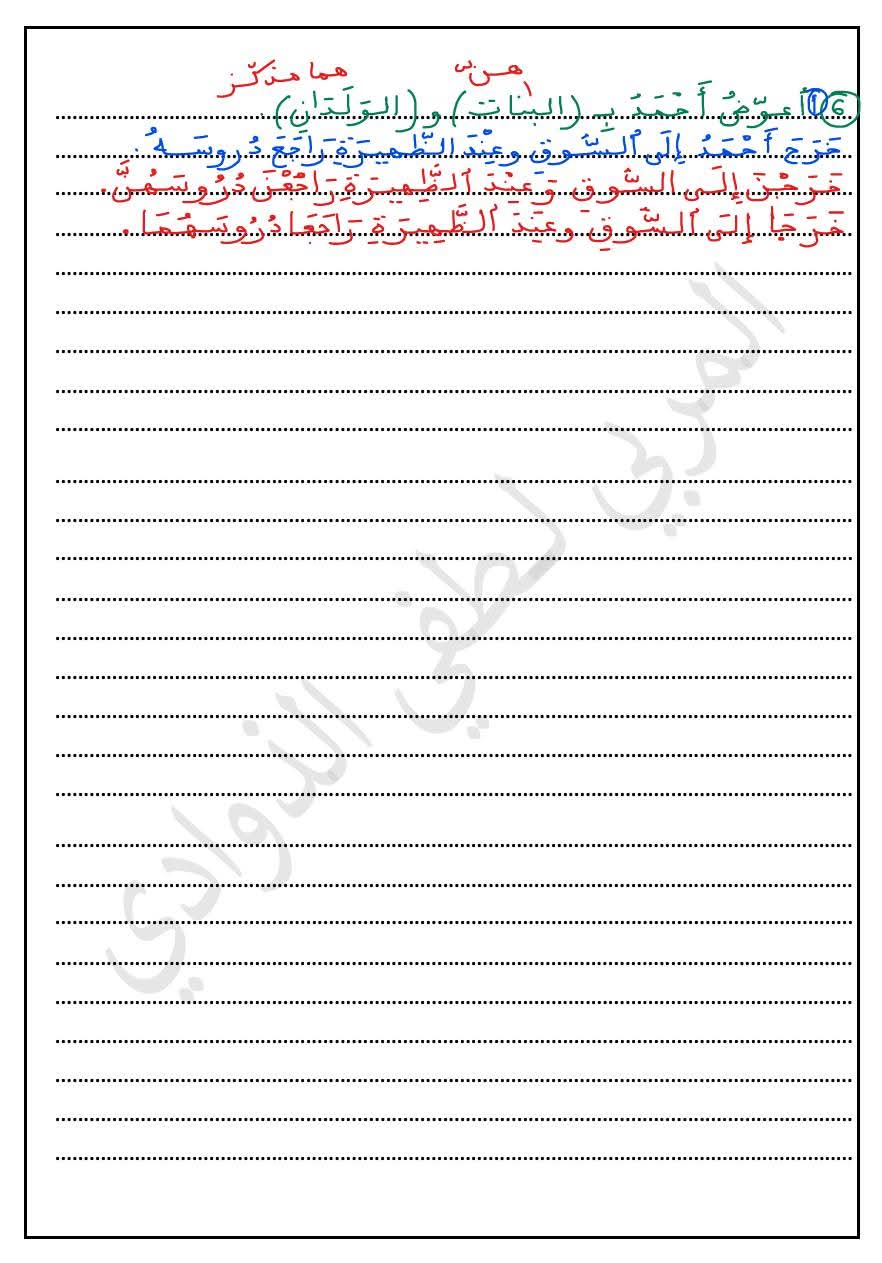 هنّ هما مذكّر
6 أ أُعوّضُ أَحْمَدُ بِـ (البنات) و (الوَلَدَانِ).
خَرَجَ أَحْمَدُ إِلَى السُّوقِ وعِنْدَ الظَّهِيرَةِ رَاجَعَ دُروسَـهُ.
خَرَجْنَ إِلَـى السُّوقِ وَعِنْدَ الظَّهِيرَةِ رَاجَعْنَ دُرُوسَهُنَّ.
خَرَجَا إِلَى السُّوقِ وَعِنْدَ الظَّهِيرَةِ رَاجَعَا دُرُوسَهُمَا.
المربي لطفي الذوادي